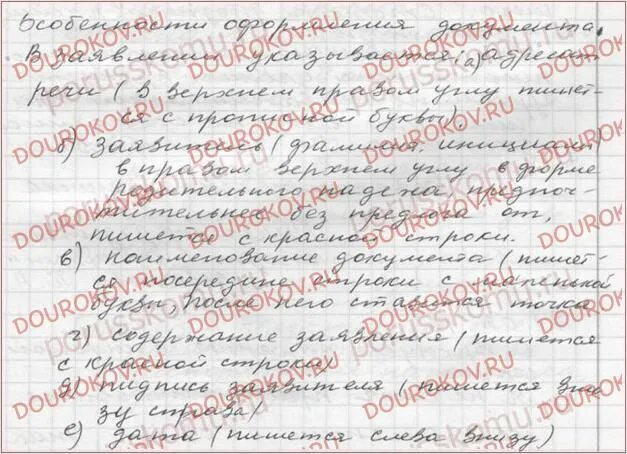 Особенности оформления документа.
В заявлении указывается: а) адресат
речи (в верхнем правом углу пишет-
ся с прописной буквы),
б) заявитель (фамилия, инициалы)
в правом верхнем углу в форме
родительного падежа, предпоч-
тительнее без предлога от,
пишется с красной строки.
в) наименование документа (пишет-
ся посередине строки с маленькой
буквы, после него ставится точка
г) содержание заявления (пишется
с красной строки)
д) пидпись заявителя (пишется вни-
зу справа)
е) дата (пишется слева внизу)
DOUROKOV.RU
porusskomu.com